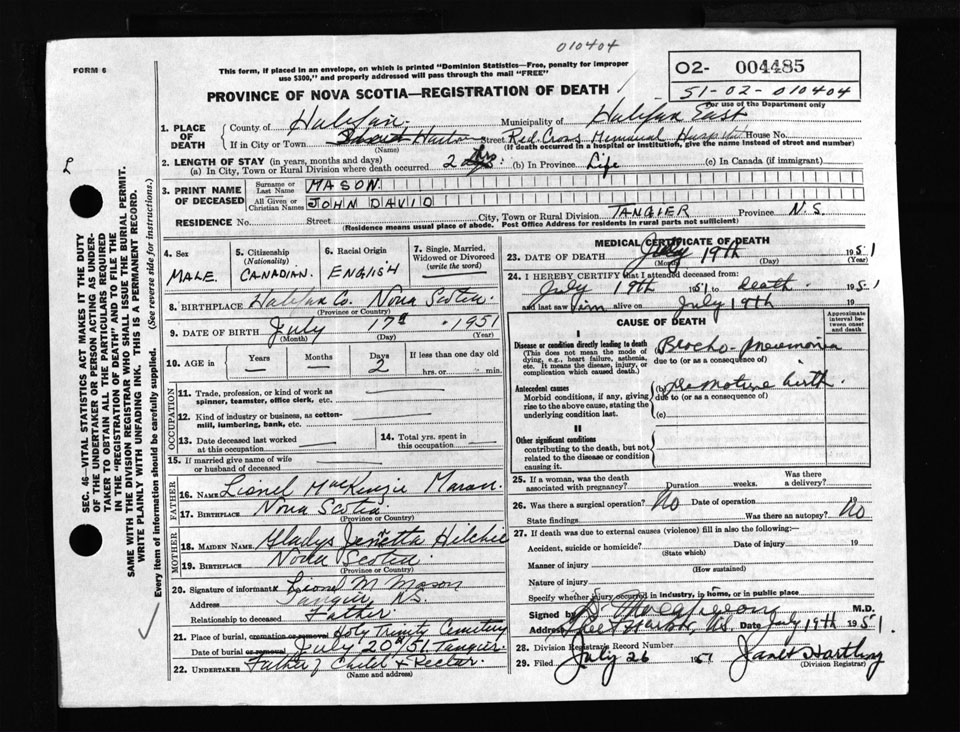 010404
FORM 6
This form, if placed in an envelope, on which is printed "Dominion Statistics—Free, penalty for improper
use $300," and properly addressed will pass through the mail "FREE"
O2- 004485
51-02-010404
For use of the Department only
PROVINCE OF NOVA SCOTIA—REGISTRATION OF DEATH
1. PLACE OF DEATH
County of Halifax. Municipality of Halifax East
If in City or Town Harbor Street Red Cross Memorial Hospital House No.
(Name) (If death occurred in a hospital or institution, give the name instead of street and number)
2. LENGTH OF STAY (in years, months and days)
(a) In City, Town or Rural Division where death occurred 2 (b) In Province Life (c) In Canada (if immigrant)
3. PRINT NAME OF DECEASED
Surname or Last Name MASON
All Given or Christian Names JOHN DAVID
RESIDENCE No. Street City, Town or Rural Division TANGIER Province N.S.
(Residence means usual place of abode. Post Office Address for residents in rural parts not sufficient)
4. Sex
MALE.
5. Citizenship
(Nationality)
CANADIAN.
6. Racial Origin
ENGLISH
7. Single, Married,
Widowed or Divorced
(write the word)
8. BIRTHPLACE Halifax Co. Nova Scotia.
(Province or Country)
9. DATE OF BIRTH July 17 1951
(Month) (Day) (Year)
10. AGE in Years Months Days If less than one day old
— — 2 hrs. or min.
OCCUPATION
11. Trade, profession or kind of work as
spinner, teamster, office clerk, etc.
12. Kind of industry or business, as cotton-
mill, lumbering, bank, etc.
13. Date deceased last worked
at this occupation
14. Total yrs. spent in
this occupation
15. If married give name of wife
or husband of deceased
FATHER
16. NAME Lionel MacKenzie Mason.
17. BIRTHPLACE Nova Scotia
(Province or Country)
MOTHER
18. MAIDEN NAME Gladys Hilchie
19. BIRTHPLACE Nova Scotia
(Province or Country)
20. Signature of informant x Lionel M Mason
Address Tangier, N.S.
Relationship to deceased Father
21. Place of burial, cremation or removal Holy Trinity Cemetery
Date of burial or removal July 20th/51. Tangier
22. UNDERTAKER Father of Child & Rector.
(Name and address)
MEDICAL CERTIFICATE OF DEATH
23. DATE OF DEATH July 19th 1951
(Month) (Day) (Year)
24. I HEREBY CERTIFY that I attended deceased from:
July 19th 1951 to death. 1951
and last saw him alive on July 19th 19
CAUSE OF DEATH
Approximate interval between onset and death
I
Disease or condition directly leading to death
(This does not mean the mode of
dying, e.g., heart failure, asthenia,
etc. It means the disease, injury, or
complication which caused death.)
Broncho-Pneumonia
due to (or as a consequence of)
Antecedent causes
Morbid conditions, if any, giving
rise to the above cause, stating the
underlying condition last.
(b) Premature birth.
due to (or as a consequence of)
(c)
II
Other significant conditions
contributing to the death, but not
related to the disease or condition
causing it.
25. If a woman, was the death
associated with pregnancy? Duration weeks. Was there a delivery?
26. Was there a surgical operation? No Date of operation 19
State findings Was there an autopsy? No
27. If death was due to external causes (violence) fill in also the following:—
Accident, suicide or homicide? Date of injury 19
(State which)
Manner of injury
(How sustained)
Nature of injury
Specify whether injury occurred in industry, in home, or in public place
Signed by M.D.
Address N.S. Date July 19th 1951.
28. Division Registrar's Record Number
29. Filed July 26 1951 Janet Hartling
(Division Registrar)
SEC. 46—VITAL STATISTICS ACT MAKES IT THE DUTY
OF THE UNDERTAKER OR PERSON ACTING AS UNDER-
TAKER TO OBTAIN ALL THE PARTICULARS REQUIRED
IN THE "REGISTRATION OF DEATH" AND TO FILE THE
SAME WITH THE DIVISION REGISTRAR WHO SHALL ISSUE THE BURIAL PERMIT.
WRITE PLAINLY WITH UNFADING INK. THIS IS A PERMANENT RECORD.
Every item of information should be carefully supplied. (See reverse side for instructions.)